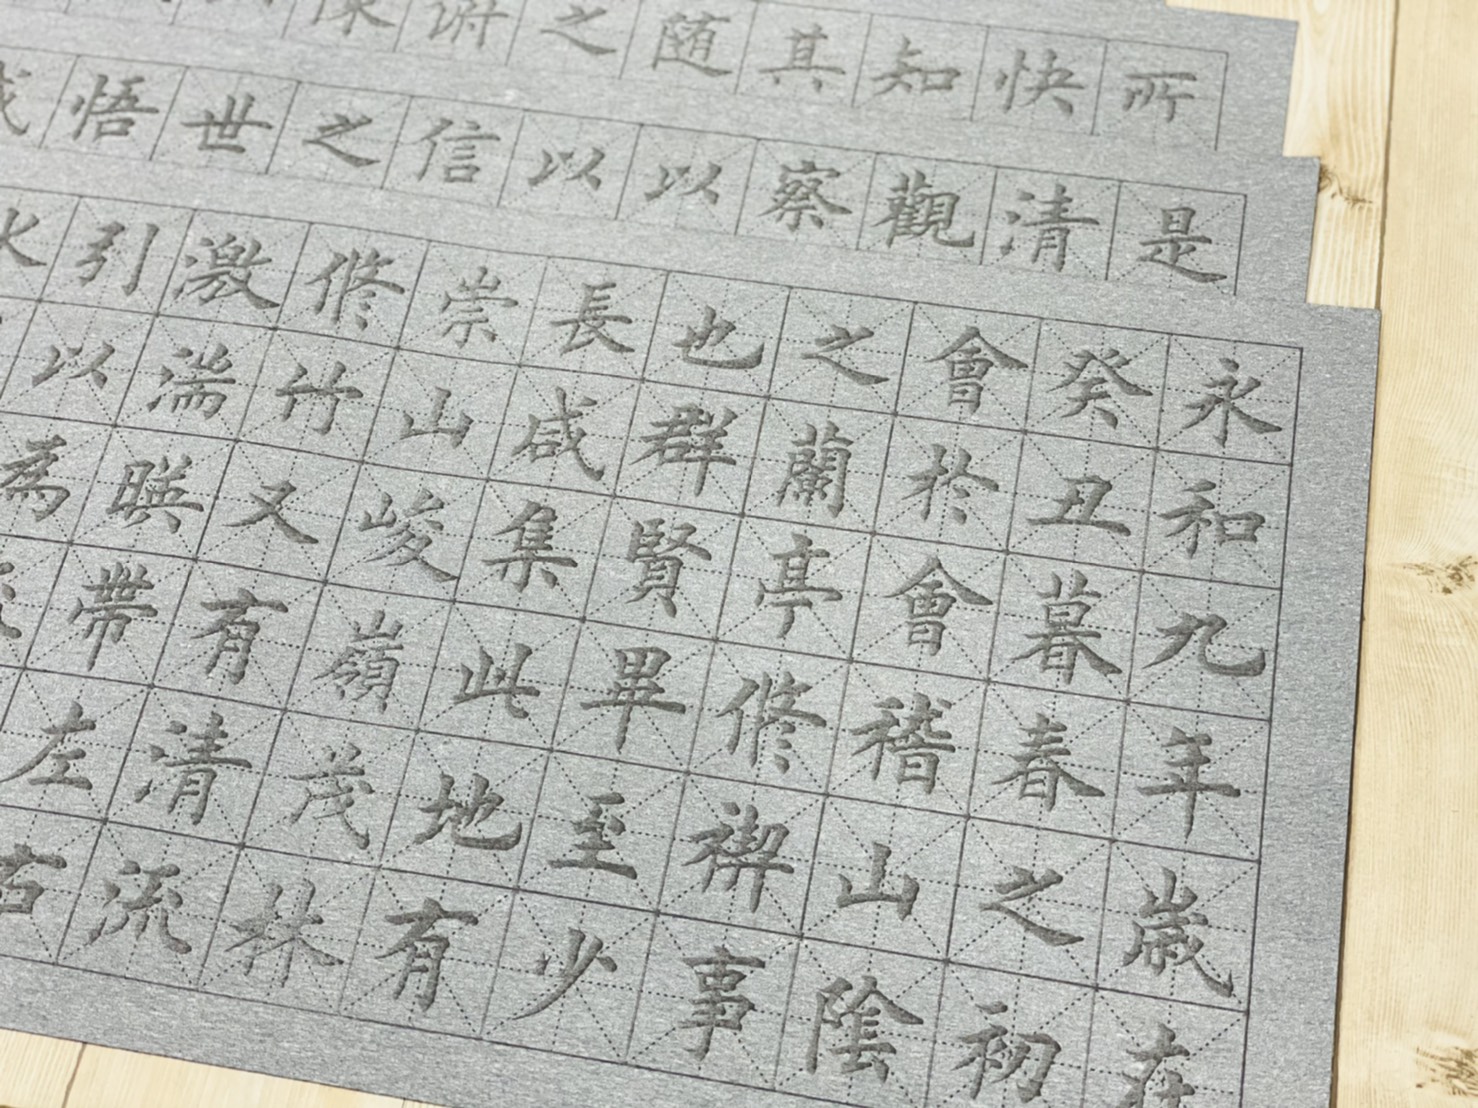 永和九年歳在
癸丑暮春之初
會於會稽山陰
之蘭亭修禊事
也群賢畢至少
長咸集此地有
崇山峻嶺茂林
修竹又有清流
激湍暎帶左右
引以為
水
是
清
觀
察
以
以
信
之
世
悟
所
快
知
其
随
之